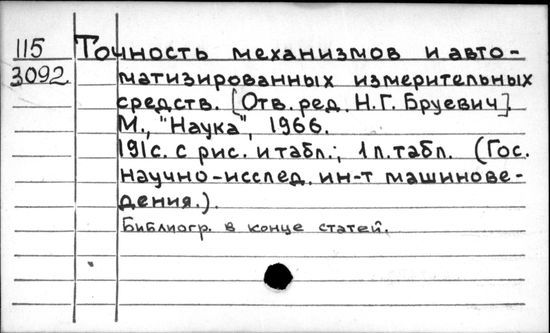 115 Точность механизмов и авто-
3092 матизированных измерительных
средств. [Отв. ред. Н.Г. Бруевич]
М., "Наука", 1966.
191с. с рис. и табл.; 1 л. табл. (Гос.
научно-исслед. ин-т машинове-
дения.).
Библиогр. в конце статей.